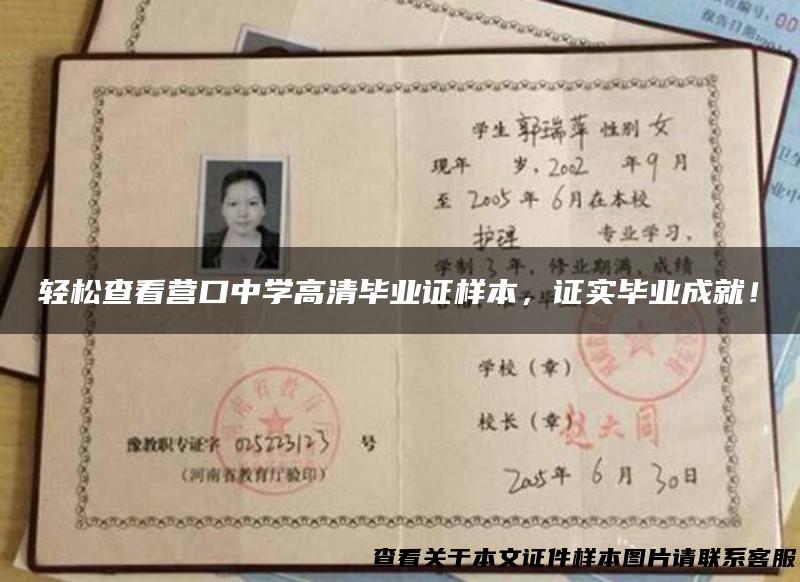 告编号：00
报告日期：201
学生 郭瑞萍 性别 女
现年 岁，2002 年 9 月
至 2005 年 6 月在本校
护理 专业学习，
学制 3 年，修业期满，成绩
轻松查看营口中学高清毕业证样本，证实毕业成就！
学校（章）
校长（章）赵大同
豫教职专证字 025223123 号
（河南省教育厅验印）
2005 年 6 月 30 日
查看关于本文证件样本图片请联系客服